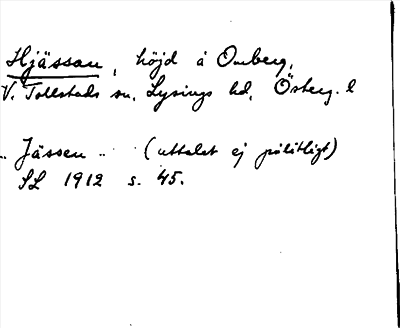 Hjässan, höjd å Omberg,
V. Tollstads sn. Lysings hd. Österg. l
.. Jässen .. (uttalet ej pålitligt)
SL 1912 s. 45.